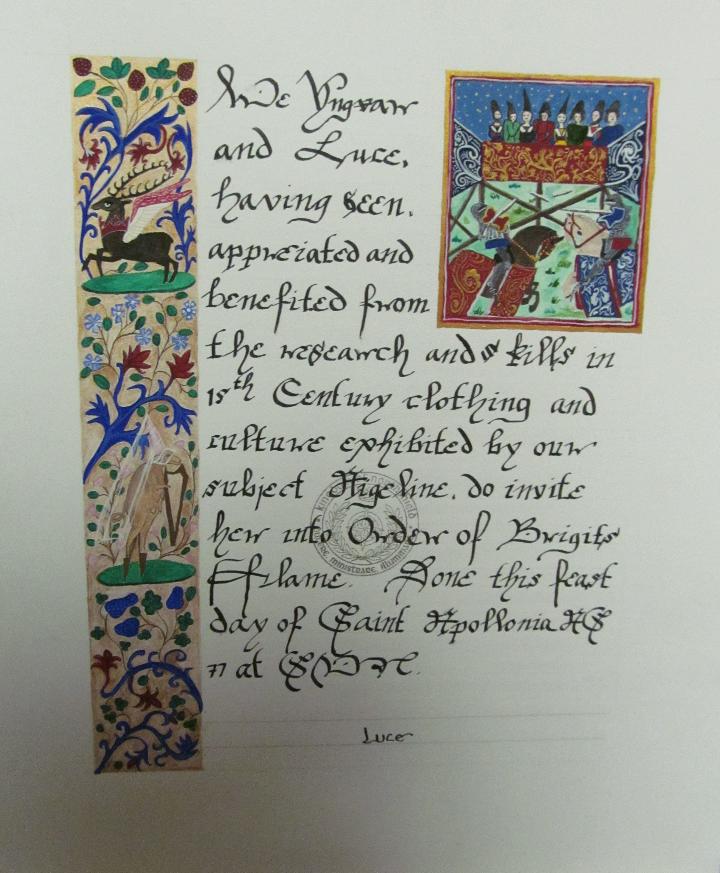 We Yngvar
and Luce,
having seen,
appreciated and
benefited from
the research and skills in
15th Century clothing and
culture exhibited by our
subject Nigeline, do invite
her into Order of Brigits
Fflame. Done this feast
day of Saint Apollonia AS
at
Luce